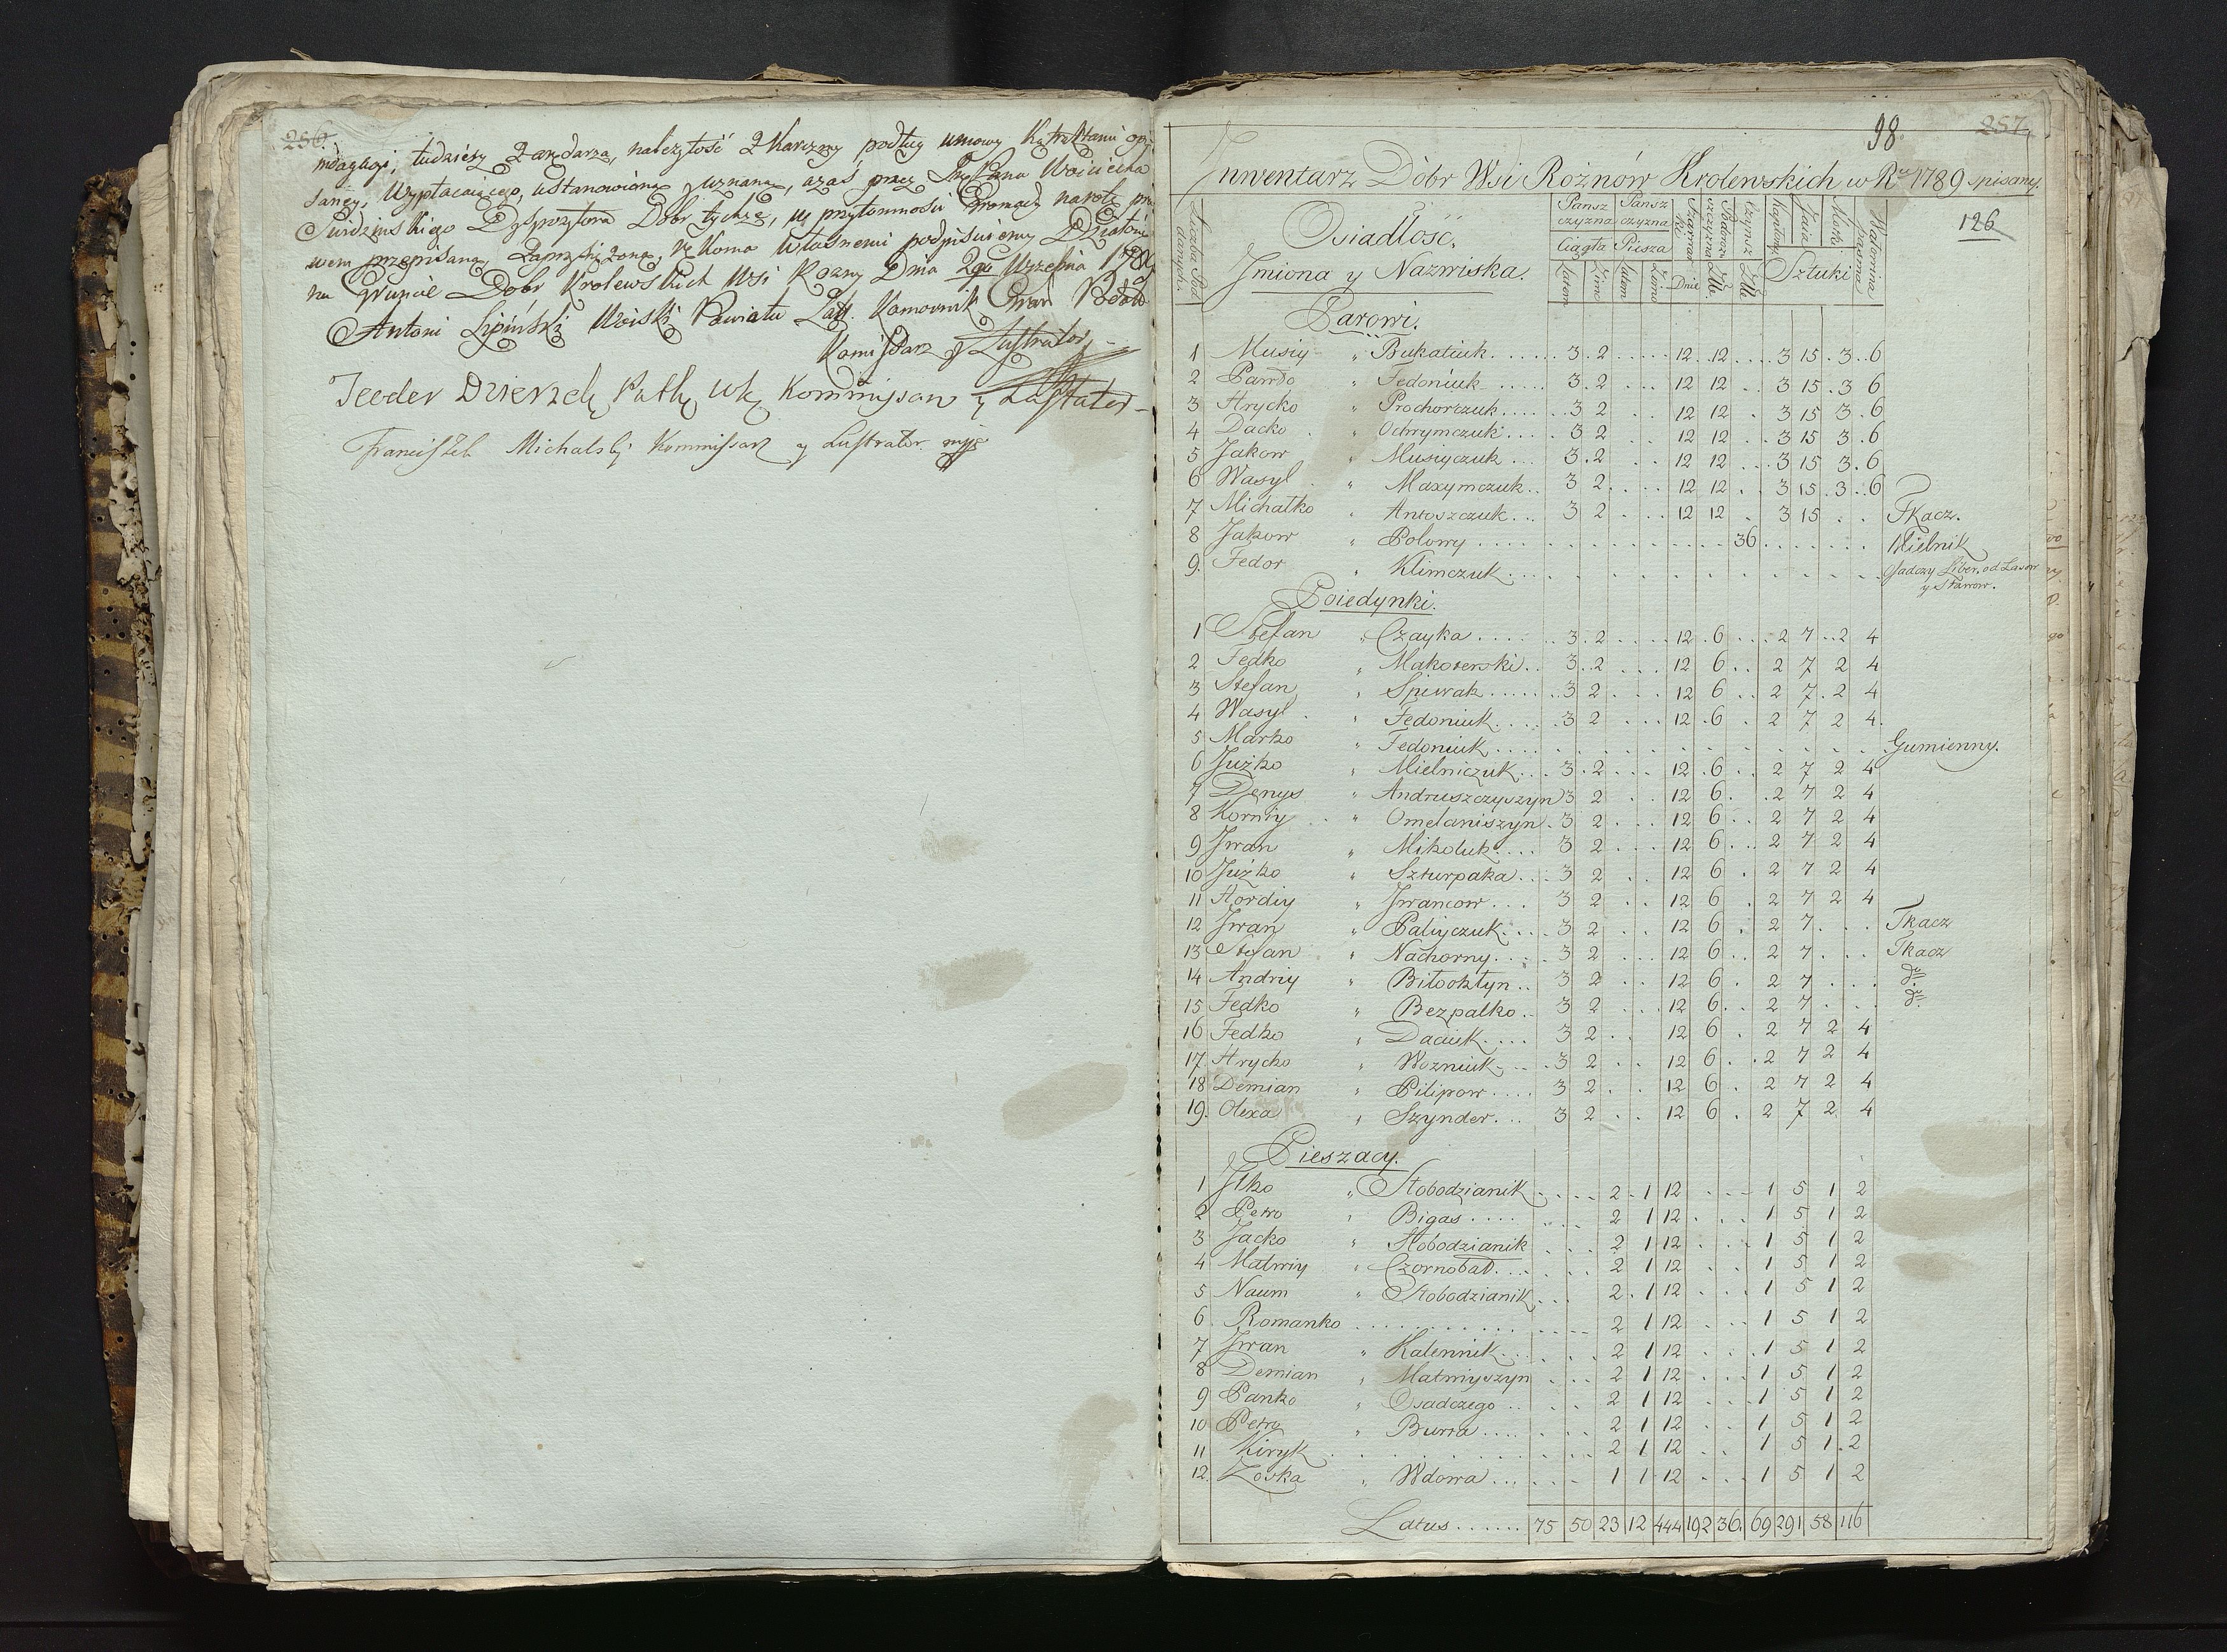 256.
tudziesz z arędarza, należytość z Karczmy podług umowy
Wypłacaiącego, ustanowioną y uznaną, a zaś przez Pana Woiciecha
Dyspozytora Dobr tychże, w przytomności Gromady
przepisaną, zaprzysiężoną, Rękoma własnemi podpisuiemy Działo się
na Gruncie Dobr Krolewskich Wsi Dnia 2go
Antoni Lipiński Woiski Powiatu Łatt. Komornik
Kommissarz y Lustrator
Teodor Dzierzek Kommissarz y Lustrator
Franciszek Michalski Kommissarz y Lustrator mpp
98.
257.
Inwentarz Dóbr Wsi Rożnów Krolewskich w Ru 1789 spisany.
126
Liczba Pod danych.
Osiadłość.
Jmiona y Nazwiska.
Pansz czyzna Ciągła Latem Zimą
Pansz czyzna Piesza Latem Zimą
Dnie
Złłe
Czynsz Złłe
Kapłony Jaia Motki Sztuki
Parowi.
1 Musiy „ Bukatiuk 3 2 12 12 3 15 3 6
2 Pawło „ Fedoniuk 3 2 12 12 3 15 3 6
3 Hrycko „ Prochorczuk 3 2 12 12 3 15 3 6
4 Dacko „ Ochrymczuk 3 2 12 12 3 15 3 6
5 Jakow „ Musiyczuk 3 2 12 12 3 15 3 6
6 Wasyl „ Maxymczuk 3 2 12 12 3 15 3 6
7 Michałko „ Antoszczuk 3 2 12 12 3 15 Tkacz.
8 Jakow „ Polowy 36 Mielnik
9. Fedor „ Klimczuk Osadczy Liber. od Lasow
y Stawow.
Poiedynki.
1 Stefan „ Czayka 3 2 12 6 2 7 2 4
2 Fedko „ Makowerski 3 2 12 6 2 7 2 4
3 Stefan „ Spiwak 3 2 12 6 2 7 2 4
4 Wasyl „ Fedoniuk 3 2 12 6 2 7 2 4
5 Marko „ Fedoniuk Gumienny.
6 Juzko „ Mielniczuk 3 2 12 6 2 7 2 4
7 Denys „ Andruszczyszyn 3 2 12 6 2 7 2 4
8 Korniy „ Omelaniszyn 3 2 12 6 2 7 2 4
9 Jwan „ Mikoluk 3 2 12 6 2 7 2 4
10 Juzko „ Szturpaka 3 2 12 6 2 7 2 4
11 Hordiy „ Jwancow 3 2 12 6 2 7 2 4
12 Jwan „ Paliyczuk 3 2 12 6 2 7 Tkacz
13 Stefan „ Nachorny 3 2 12 6 2 7 Tkacz
14 Andriy „ Biłooktyn 3 2 12 6 2 7 do
15 Fedko „ Bezpalko 3 2 12 6 2 7 do
16 Fedko „ Daciuk 3 2 12 6 2 7 2 4
17 Hrycko „ Wozniuk 3 2 12 6 2 7 2 4
18 Demian „ Pilipow 3 2 12 6 2 7 2 4
19. Olexa „ Szynder 3 2 12 6 2 7 2 4
Pieszacy.
1 Jlko „ Słobodzianik 2 1 12 1 5 1 2
2 Petro „ Bigas 2 1 12 1 5 1 2
3 Jacko „ Słobodzianik 2 1 12 1 5 1 2
4 Matwiy „ Czornobad 2 1 12 1 5 1 2
5 Naum „ Słobodzianik 2 1 12 1 5 1 2
6. Romanko 2 1 12 1 5 1 2
7 Jwan „ Kalennik 2 1 12 1 5 1 2
8 Demian „ Matwiyszyn 2 1 12 1 5 1 2
9 Panko „ Osadczego 2 1 12 1 5 1 2
10 Petro „ Burra 2 1 12 1 5 1 2
11 Kiryk 2 1 12 1 5 1 2
12. Zoska „ Wdowa 1 1 12 1 5 1 2
Latus 75 50 23 12 444 192 36 69 291 58 116